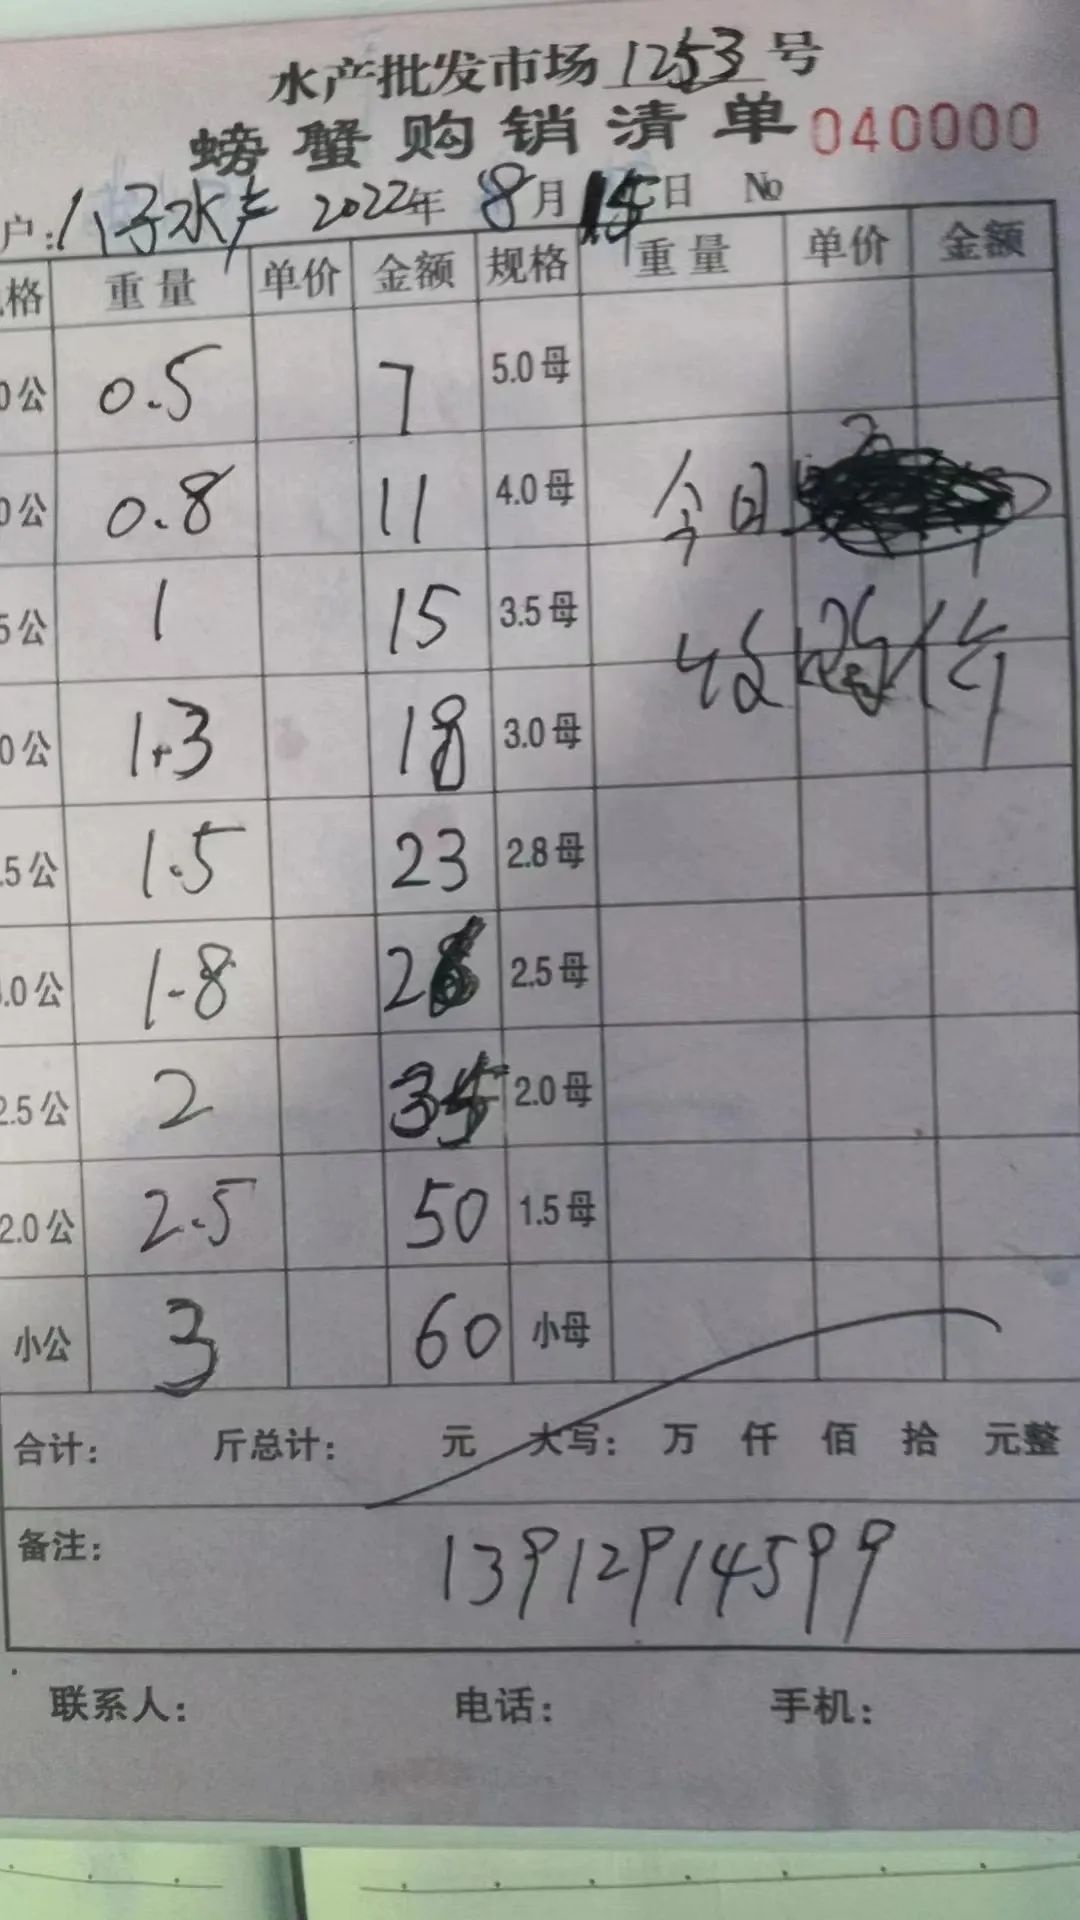 水产批发市场1253号
螃蟹购销清单 040000
户: 八子水产 2022年 8月 15日 No
格 重量 单价 金额 规格 重量 单价 金额
0公 0.5 7 5.0母
0公 0.8 11 4.0母 今日
5公 1 15 3.5母
收 价
0公 1.3 18 3.0母
.5公 1.5 23 2.8母
.0公 1.8 28 2.5母
2.5公 2 35 2.0母
2.0公 2.5 50 1.5母
小公 3 60 小母
合计: 斤总计: 元 大写: 万 仟 佰 拾 元整
备注: 13912914599
联系人: 电话: 手机: